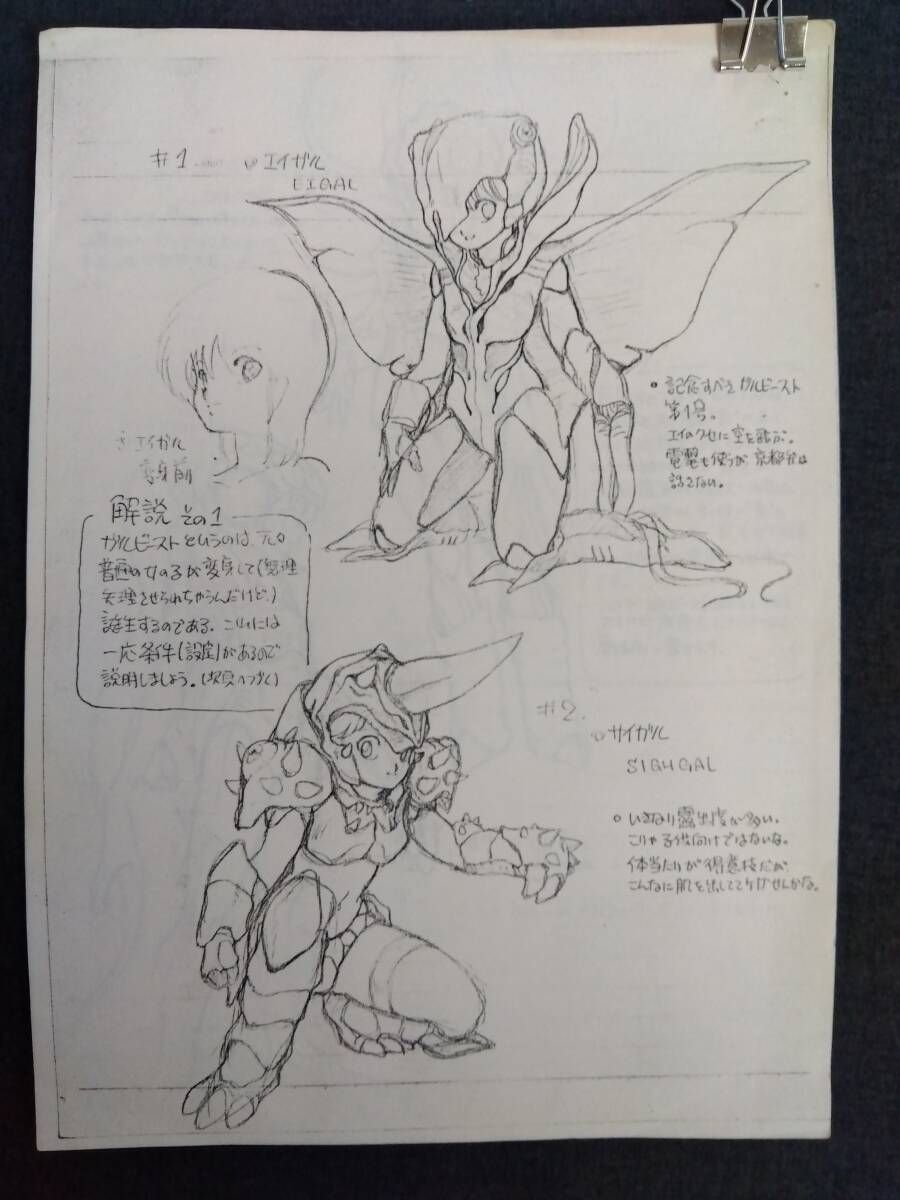 #1. エイガル
EIGAL
エイガル
変身前
解説 その1
ガルビーストというのは、元々
普通の女の子が変身して(無理
矢理させられちゃうんだけど)
誕生するのである。これには
一応条件(設定)があるので
説明しましょう。(次頁へつづく)
記念すべきガルビースト
第1号。
エイのクセに空を飛ぶ。
電撃も使うが京都弁は
話さない。
#2.
サイガル
SIGHGAL
いきなり露出度が多い。
こりゃ子供向けではないな。
体当たりが得意技だが
こんなに肌を出しててケガせんかな。